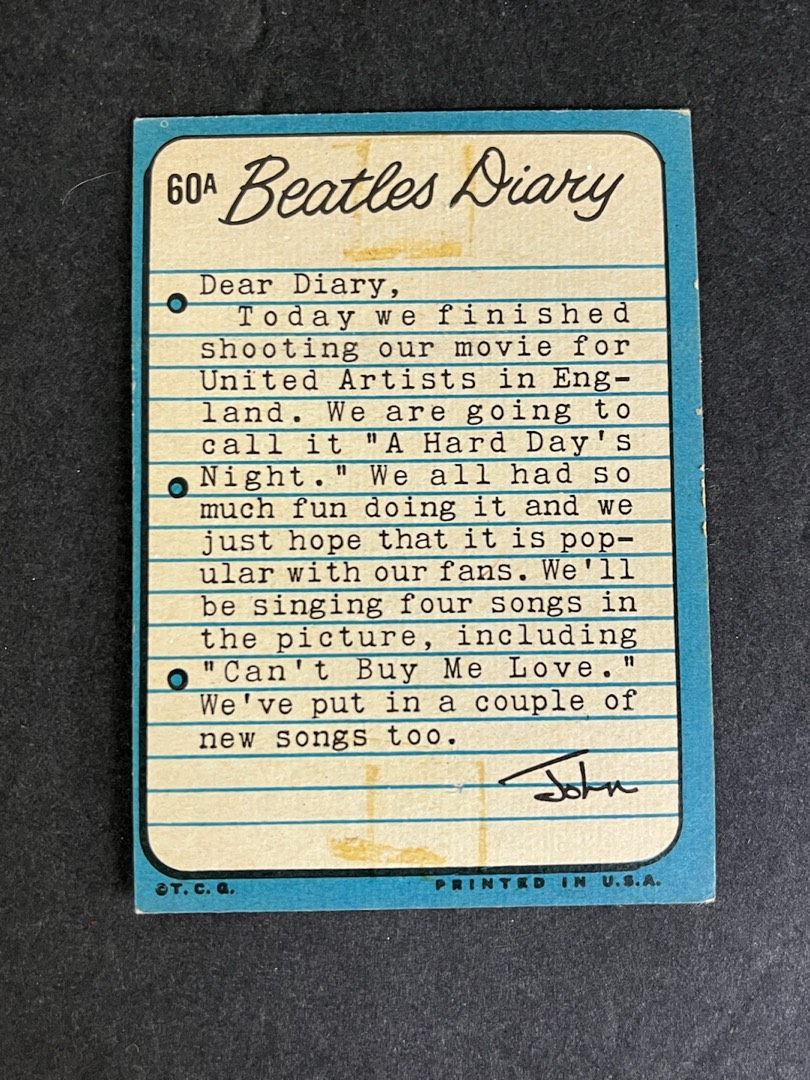 60A Beatles Diary
Dear Diary,
Today we finished
shooting our movie for
United Artists in Eng-
land. We are going to
call it "A Hard Day's
Night." We all had so
much fun doing it and we
just hope that it is pop-
ular with our fans. We'll
be singing four songs in
the picture, including
"Can't Buy Me Love."
We've put in a couple of
new songs too.
John
©T. C. G. PRINTED IN U.S.A.